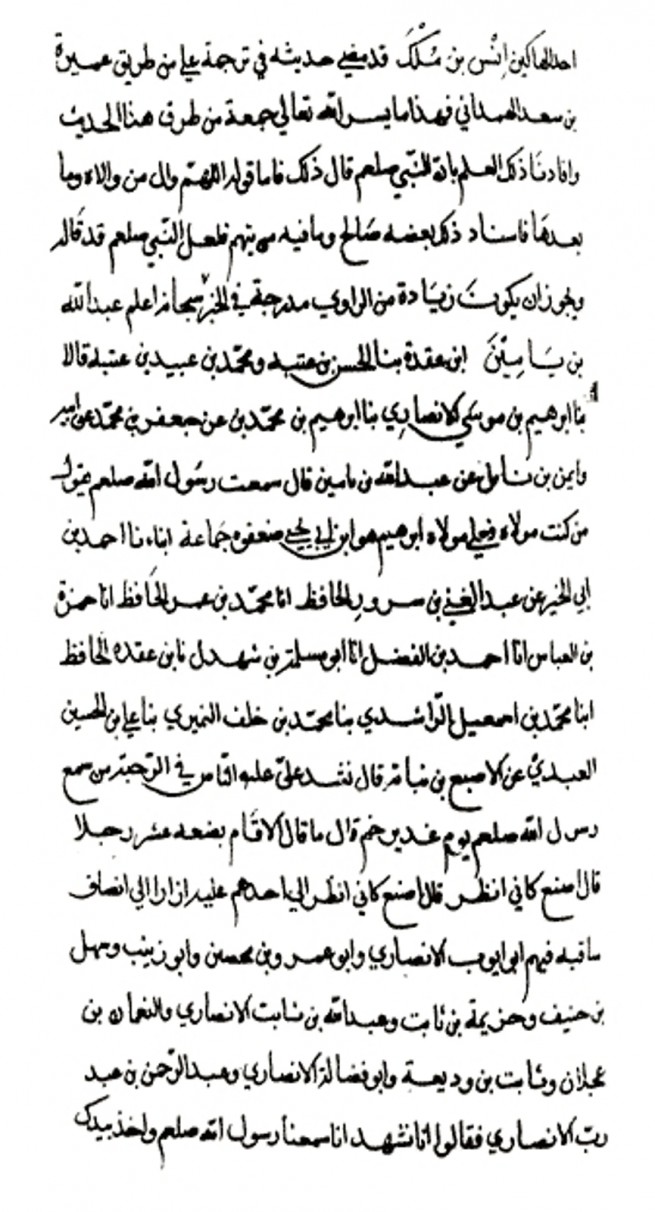 احد الهالكين انس بن ملك قد مضى حديثه في ترجمة علي من طريق عميرة
بن سعد الهمداني فهذا ما يسر الله تعالى جمعة من طرق هذا الحديث
وافادنا ذلك العلم بان النبي صلعم قال ذلك فاما قوله اللهم وال من والاه وما
بعدها فاسناد ذلك بعضه صالح وما فيه من يتهم فلعل النبي صلعم قد قاله
ويجوز ان يكون زيادة من الراوي مدرجة في الخبر والله اعلم عبدالله
بن يامين ابن عقدة بنا الحسن بن عتبه ومحمد بن عبيد بن عتبة قالا
بنا ابرهيم بن موسى الانصاري بنا ابرهيم بن محمد بن عن جعفر بن محمد عن ابيه
وايمن بن نابل عن عبدالله بن يامين قال سمعت رسول الله صلعم يقول
من كنت مولاه فعلي مولاه ابرهيم هو ابن ابي يحيى ضعفوه جماعة انباءنا احمد بن
ابي الخير عن عبد الغني بن سرور الحافظ انا محمد بن عمر الحافظ انا حمزة
بن العباس انا احمد بن الفضل انا ابو مسلم بن شهدل نا بن عقدة الحافظ
انبا محمد بن اسمعيل الراشدي بنا محمد بن خلف النميري بنا علي بن الحسين
العبدي عن الاصبغ بن نباتة قال نشد علي عليه الناس في الرحبة من سمع
رسول الله صلعم يوم غدير خم قال ما قال الا قام بضعه عشر رجلا
قال اصبغ كاني انظر قال اصبغ كاني انظر الى احدهم عليه ازارا الى انصاف
ساقيه فيهم ابو ايوب الانصاري وابو عمرو بن محصن وابو زينب وسهل
بن حنيف وحزيمة بن ثابت وعبدالله بن ثابت الانصاري والنعمان بن
عجلان وثابت بن وديعة وابو فضالة الانصاري وعبد الرحمن بن عبد
رب الانصاري فقالوا انا نشهد انا سمعنا رسول الله صلعم واخذ بيدك